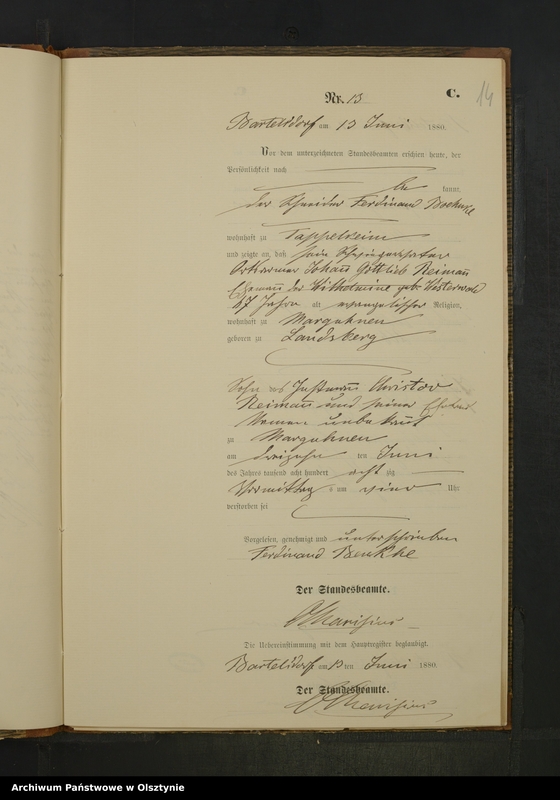 C.
14
Nr. 13
Bartelsdorf am 13 Juni 1880.
Vor dem unterzeichneten Standesbeamten erschien heute, der
Persönlichkeit nach
kannt,
der Schneider Ferdinand
wohnhaft zu Tappelkeim
und zeigte an, daß sein Schwiegervater
Ortsarmer Johann Gottlieb Reimann
Ehemann der Wilhelmine geb.
67 Jahre alt evangelischer Religion,
wohnhaft zu Marguhnen
geboren zu Landsberg
Sohn des Instmann Christov
Reimann und seiner Ehefrau
Namen unbekannt
zu Marguhnen
am dreizehn ten Juni
des Jahres tausend acht hundert acht zig
Vormittag s um vier Uhr
verstorben sei
Vorgelesen, genehmigt und unterschrieben
Ferdinand
Der Standesbeamte.
Die Uebereinstimmung mit dem Hauptregister beglaubigt.
Bartelsdorf am 13 ten Juni 1880.
Der Standesbeamte.
Archiwum Państwowe w Olsztynie